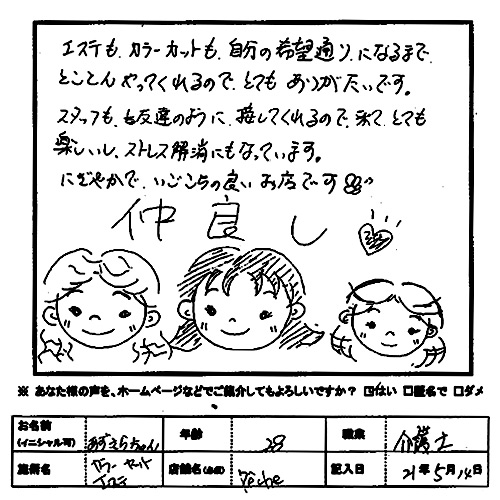 エステも、カラーカットも、自分の希望通りになるまで、
とことんやってくれるので、とてもありがたいです。
スタッフも、お友達のように、接してくれるので、来て、とても
楽しいし、ストレス解消にもなっています。
にぎやかで、いごこちの良いお店です
仲良し
※ あなた様の声を、ホームページなどでご紹介してもよろしいですか？ ☑はい □匿名で □ダメ
お名前 (イニシャル可) 年齢 28 職業 介護士
施術名 カラー カット エステ 店舗名(必須) 記入日 21年5月14日